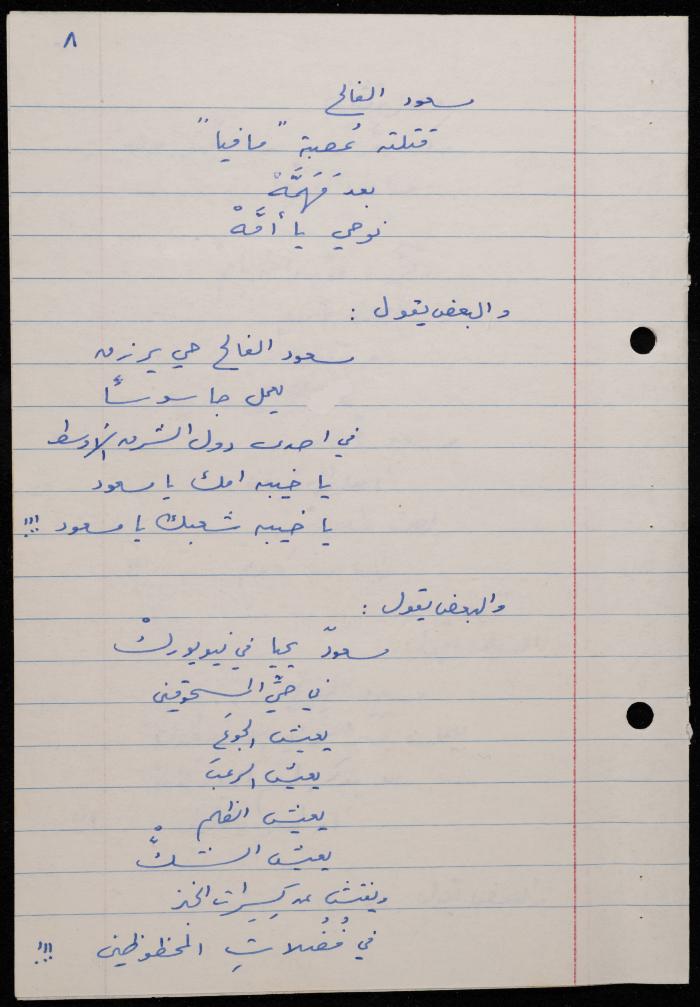 ٨
سعود الفالح
قتلته عُصبة "مافيا"
بعدَ مَهَمَّهْ
نوحي يا أمَّهْ
والبعض يقول :
سعود الفالح حي يرزق
يعمل جاسوساً
في احدى دول الشرق الاوسط
يا خيبه امك يا سعود
يا خيبه شعبك يا سعود !!!
والبعض يقول :
سعودّ يحيا في نيويوركْ
في حيِّ المسحوقين
يعيش الجوعَ
يعيش الرعبَ
يعيش الظلم
يعيش الشكّْ
ويفتش عن كِسِيرات الخبز
في فُضُلاتِ المحظوظين !!!